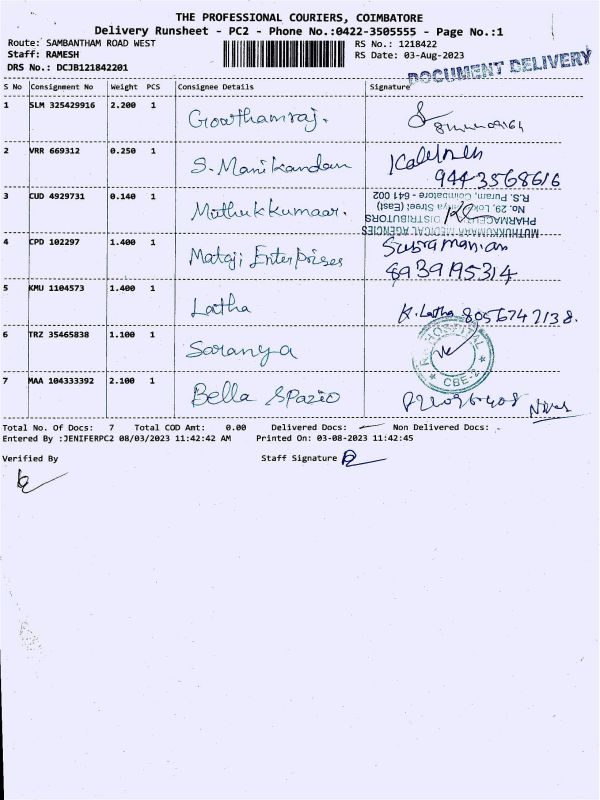 THE PROFESSIONAL COURIERS, COIMBATORE
Delivery Runsheet - PC2 - Phone No.:0422-3505555 - Page No.:1
Route: SAMBANTHAM ROAD WEST
Staff: RAMESH
DRS No.: DCJB121842201
RS No.: 1218422
RS Date: 03-Aug-2023
DOCUMENT DELIVERY
S No Consignment No Weight PCS Consignee Details Signature
1 SLM 325429916 2.200 1 Gowthamraj.
2 VRR 669312 0.250 1 S. Manikandan
944 3568616
3 CUD 4929731 0.140 1 Muthukkumaar.
MUTHUKKUMAAR MEDICAL AGENCIES
PHARMACEUTICAL DISTRIBUTORS
R.S. Puram, Coimbatore - 641 002
4 CPD 102297 1.400 1 Mataji Enterprises Subramanian
8939195314
5 KMU 1104573 1.400 1 Latha K. Latha 8056747138.
6 TRZ 35465838 1.100 1 Saranya
HOSPITAL
CBE-2
7 MAA 104333392 2.100 1 Bella Spazio
Total No. Of Docs: 7 Total COD Amt: 0.00 Delivered Docs: Non Delivered Docs:
Entered By :JENIFERPC2 08/03/2023 11:42:42 AM Printed On: 03-08-2023 11:42:45
Verified By Staff Signature